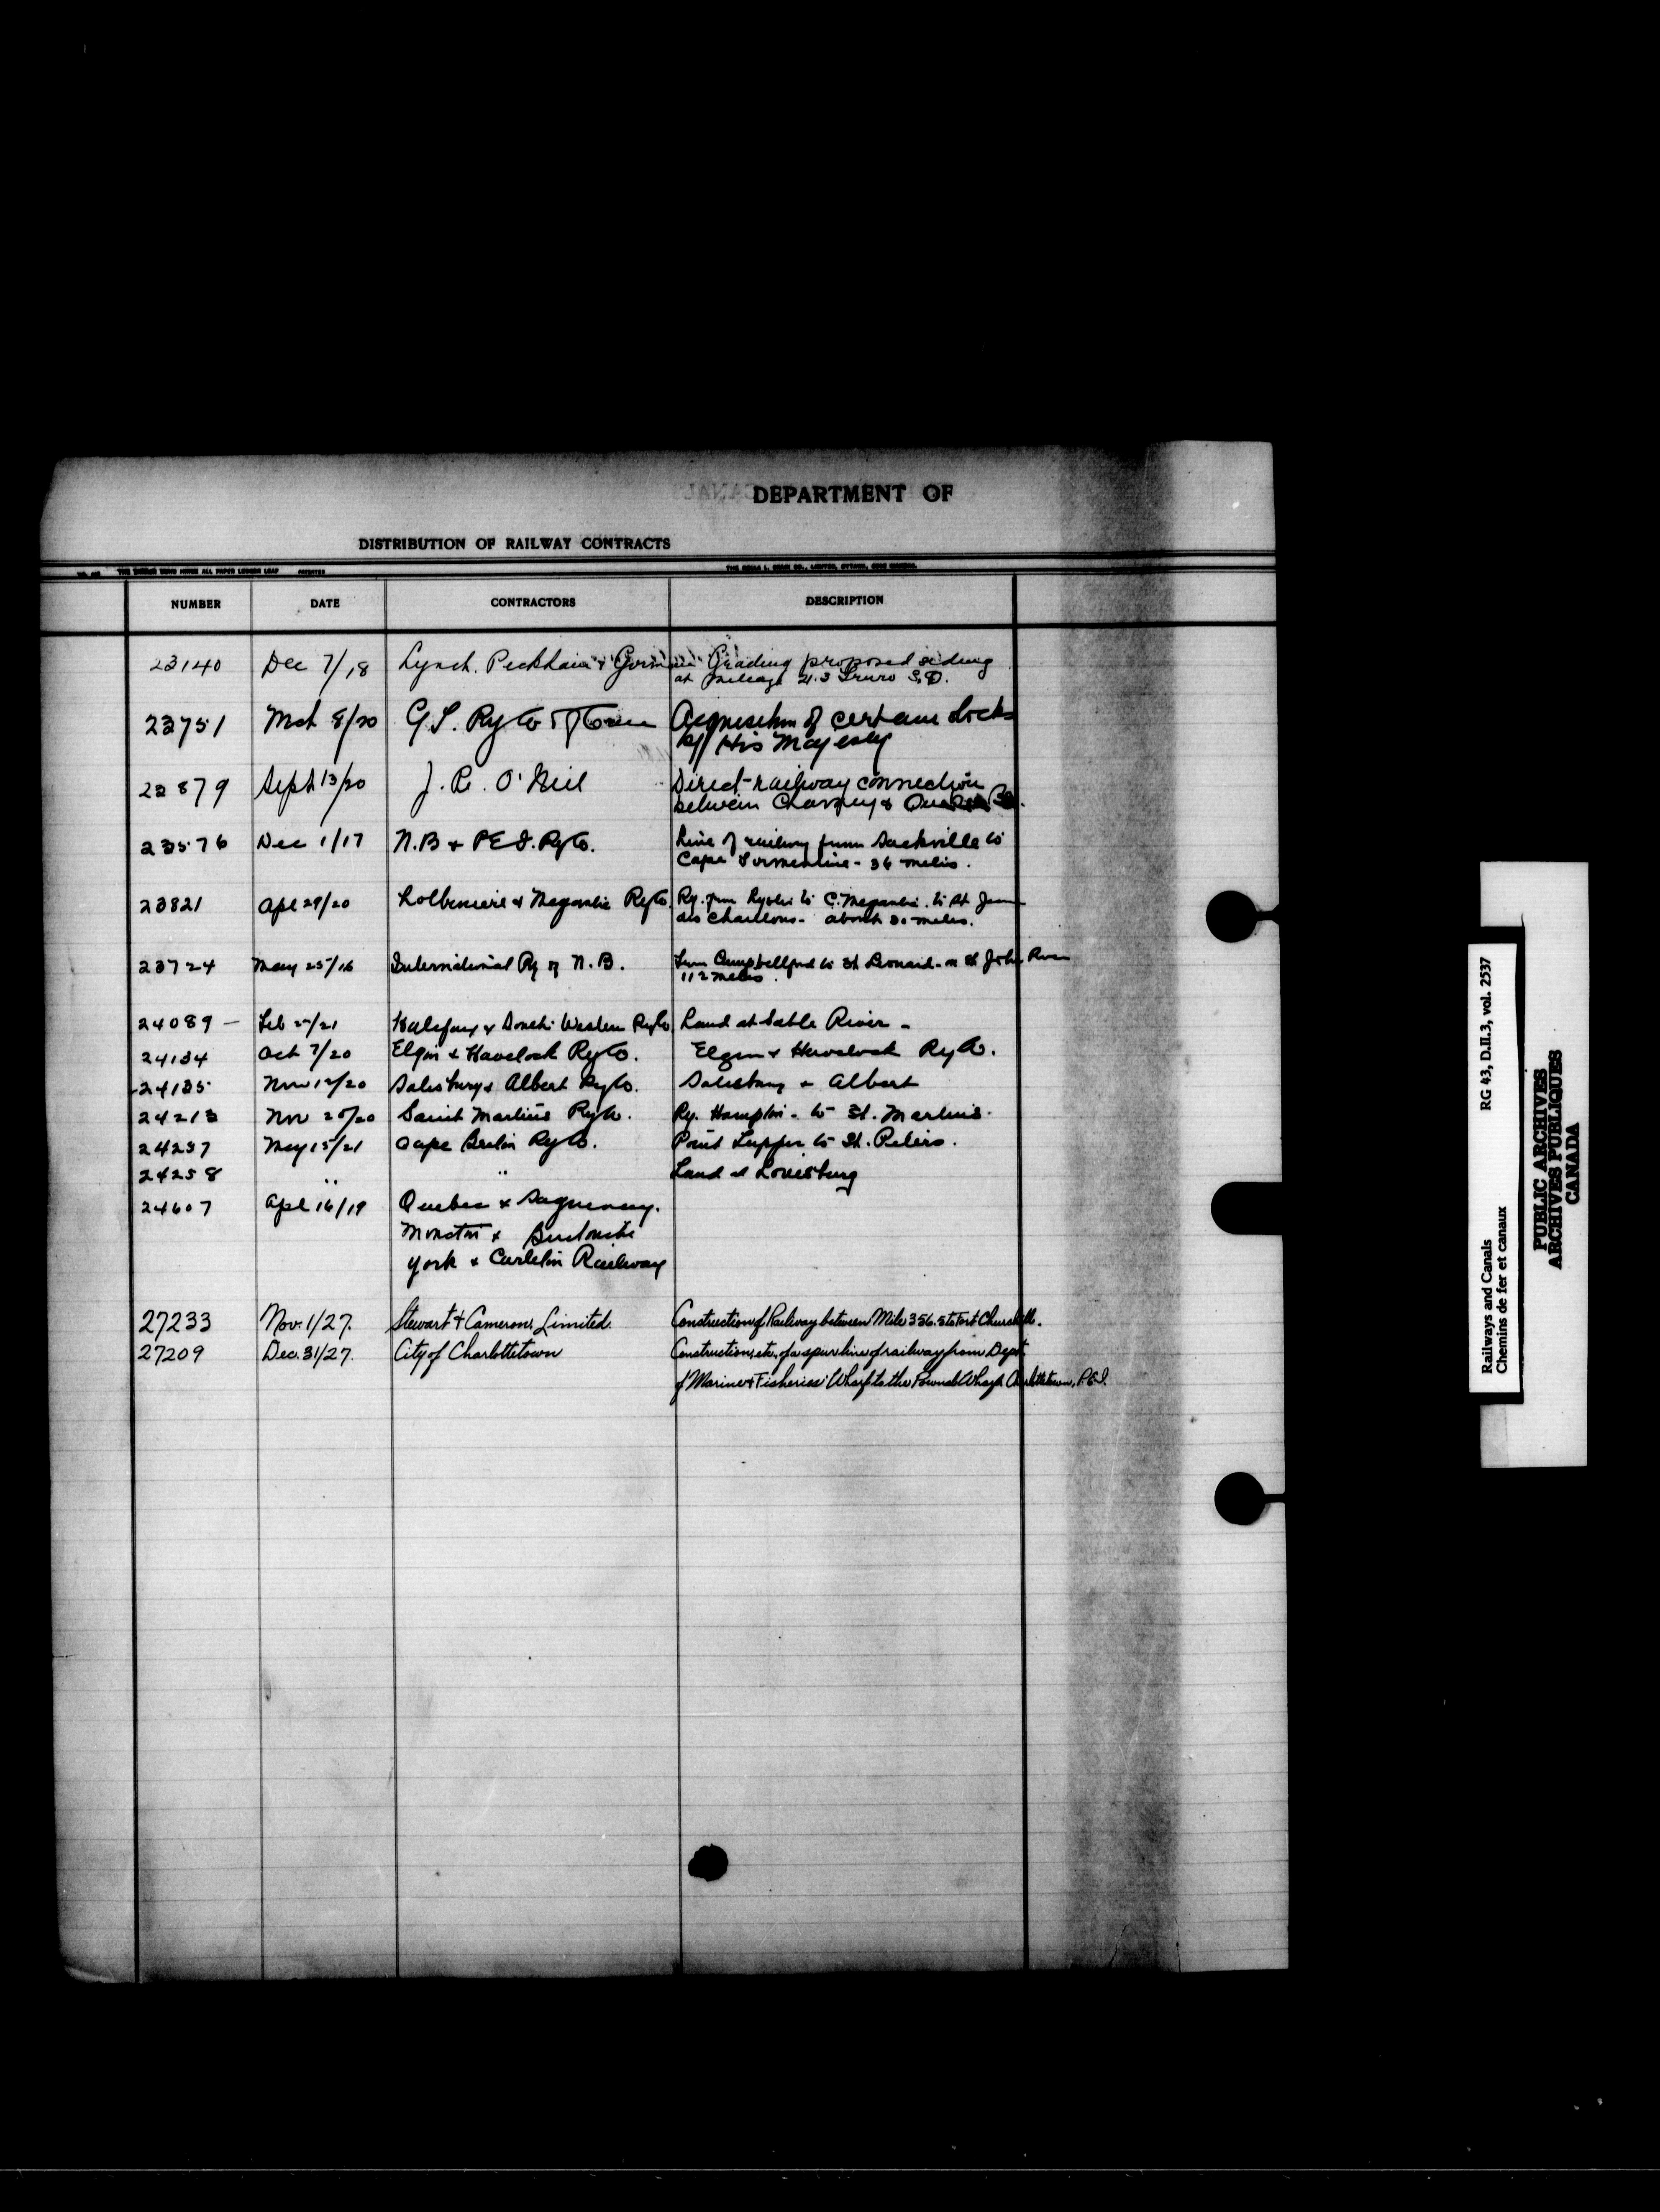 DEPARTMENT OF
DISTRIBUTION OF RAILWAY CONTRACTS
NUMBER DATE CONTRACTORS DESCRIPTION
23140 Dec 7/18 Lynch. Peckham & Gorman Grading proposed siding
at mileage 21.3 Truro S.D.
23751 Mch 8/20 G.T. Ry Co Acquisition of certain
by His Majesty
23879 Sept 13/20 J. R. O'Neil Direct railway connection
between Charny & Quebec
23576 Dec 1/17 N.B & P.E.I. Ry Co. Line of railway from Sackville to
Cape Tormentine - 36 miles.
23821 Apl 29/20 Lotbiniere & Megantic Ry Co. Ry. from Lyster to C. Megantic to St Jean
des Chaillons - about 30 miles.
23724 May 25/16 International Ry of N.B. from Campbellford to St Leonard on St John River
112 miles.
24089 - Feb /21 Halifax & South Western Ry Co Land at Sable River -
24134 Oct 7/20 Elgin & Havelock Ry Co. Elgin & Havelock Ry Co.
24135 Nov 12/20 Salisbury & Albert Ry Co. Salisbury & Albert
24213 Nov 20/20 Saint Martins Ry Co. Ry. Hampton - to St. Martins.
24257 May 15/21 Cape Breton Ry Co. Point Tupper to St. Peters.
24258 " " Land at Louisburg
24607 Apl 16/19 Quebec & Saguenay.
Moncton & Buctouche
York & Carleton Railway
27233 Nov. 1/27. Stewart & Cameron, Limited. Construction of Railway between Mile 356.5 to Fort Churchill.
27209 Dec. 31/27. City of Charlottetown Construction, etc. of a spur line of railway from Dept.
of Marine & Fisheries' Wharf to the Pownal Wharf Charlottetown, P.E.I.
Railways and Canals RG 43, D.II.3, vol. 2537
Chemins de fer et canaux
PUBLIC ARCHIVES
ARCHIVES PUBLIQUES
CANADA